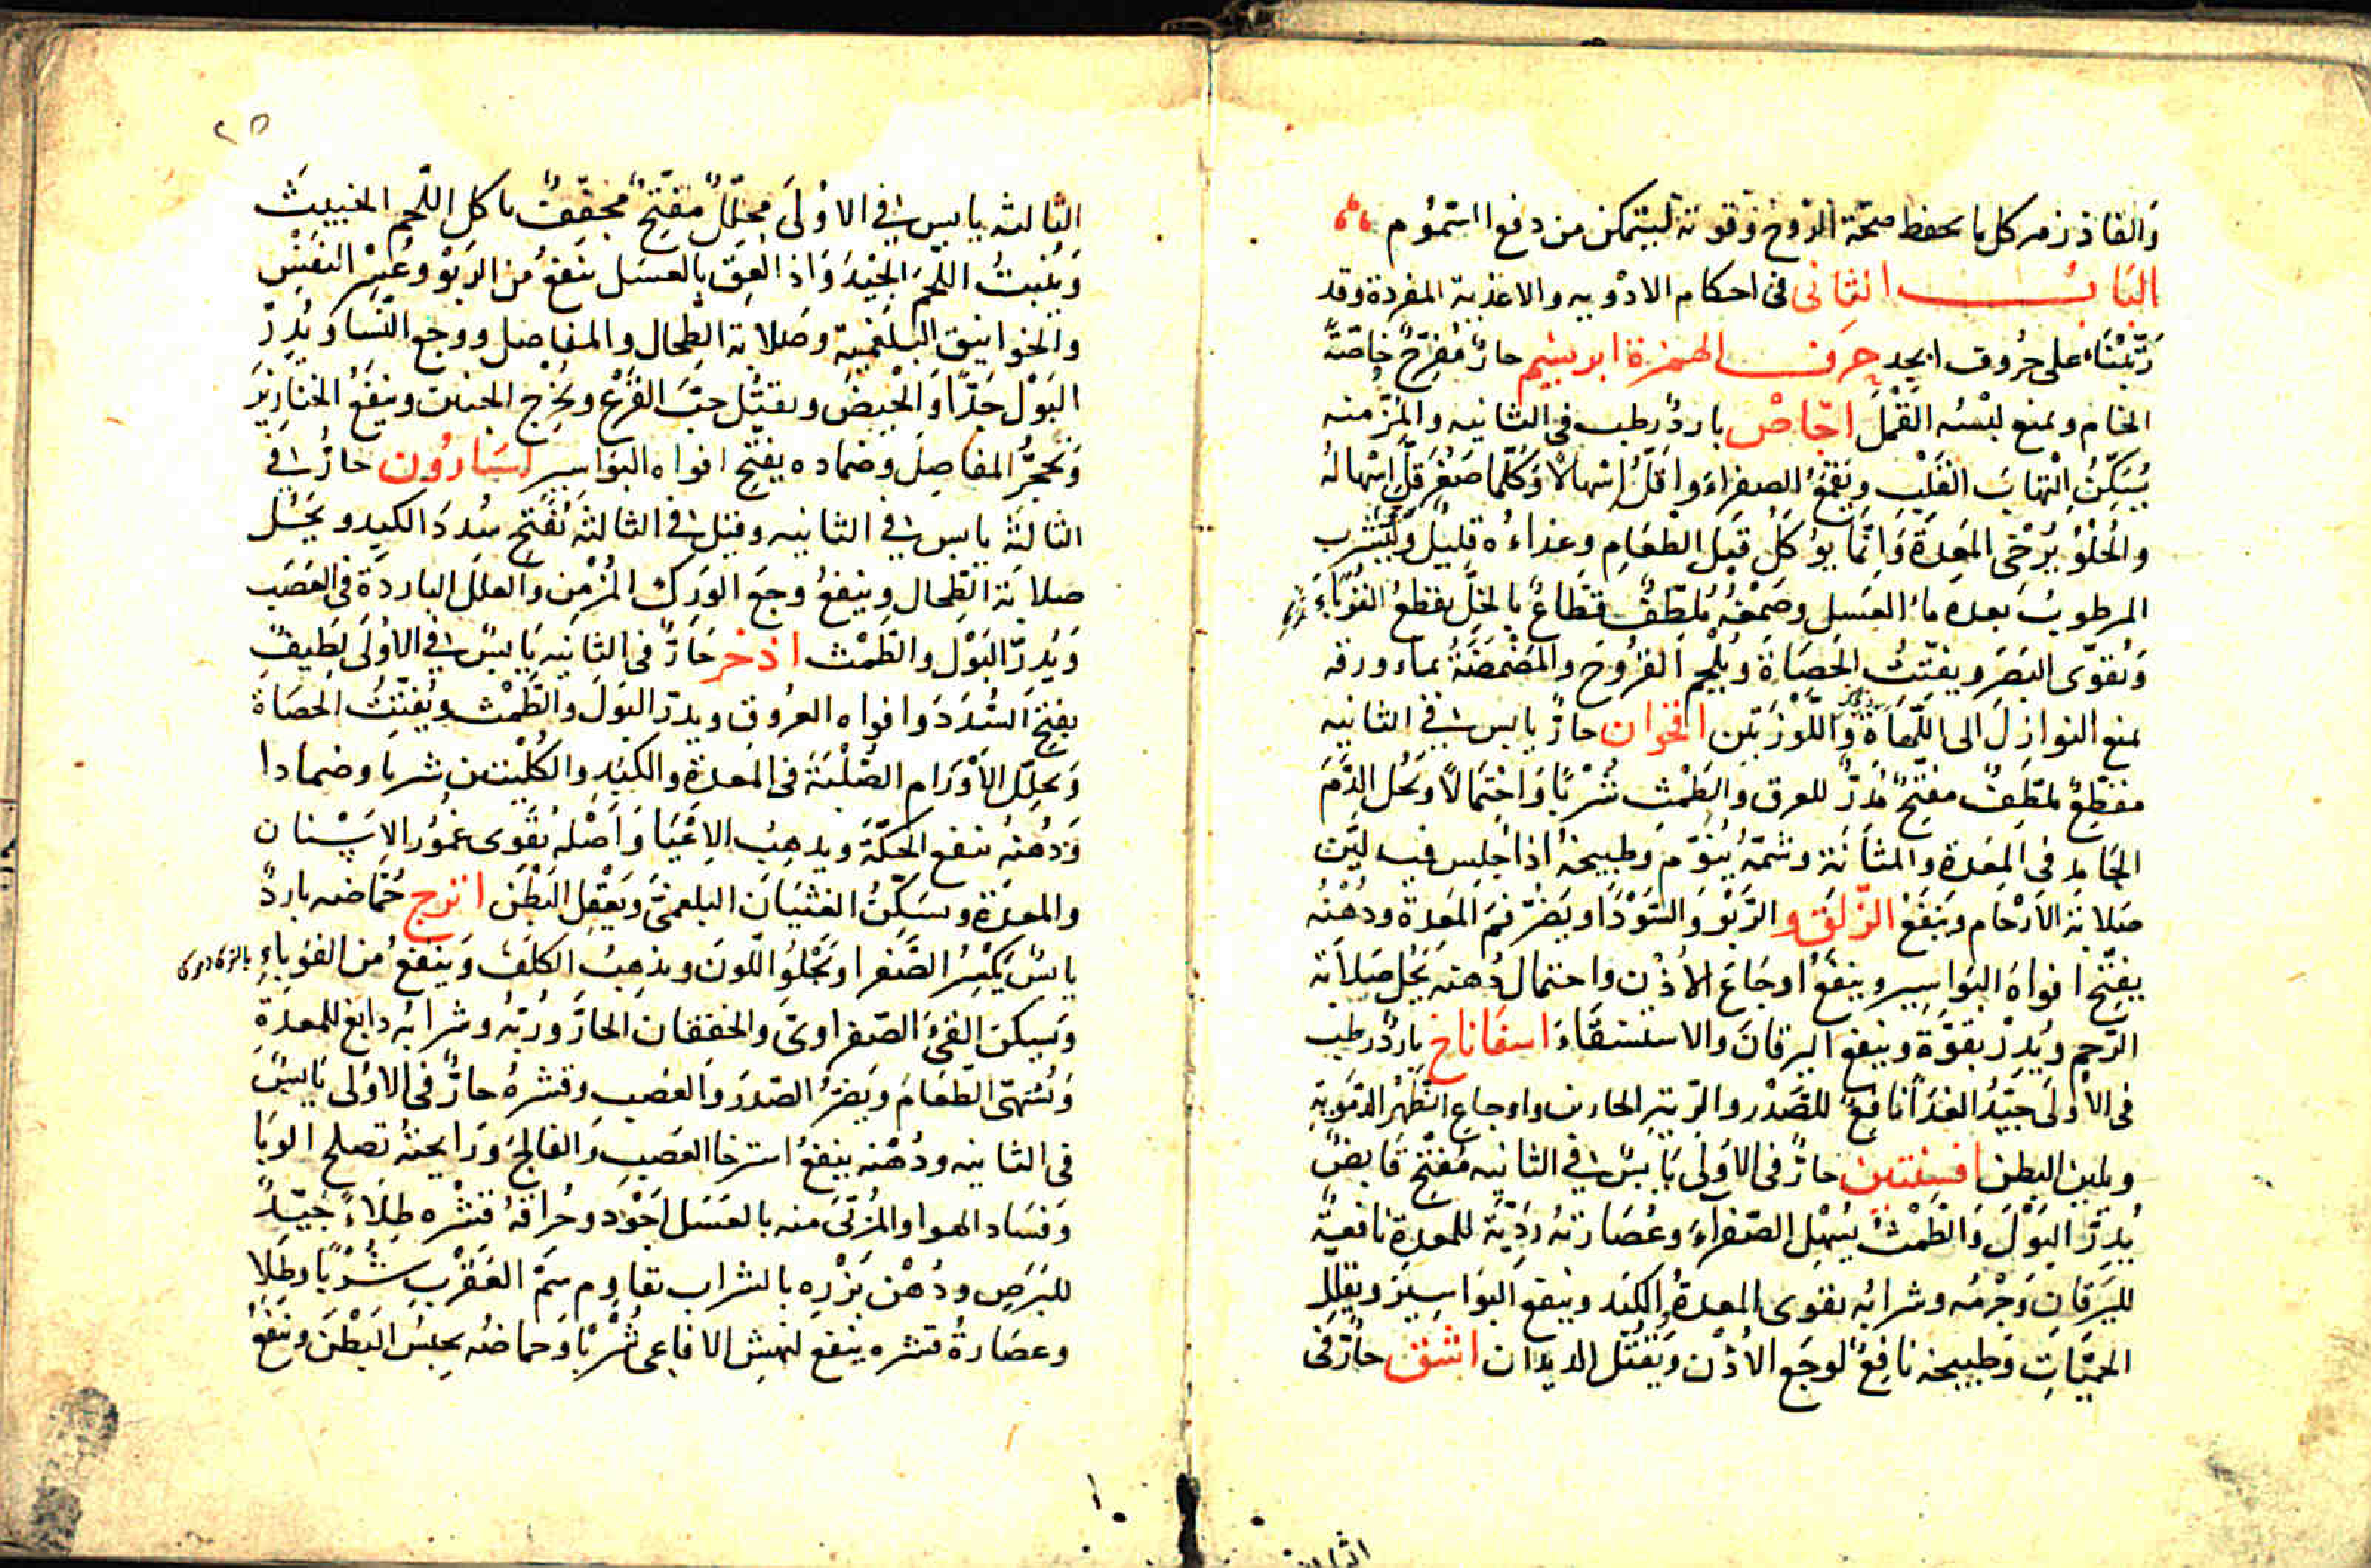 والفاذزهر كل ما يحفظ صحّة الرّوح وقوته ليتمكن من دفع السّموم
البابُ الثانى فى احكام الادْويه والاغذية المفردة وقد
رَتّبْنَاهُ على حُروف ابجد حَرف الهمزة ابريسم حارٌ مُفرِّحٌ خاصّةً
الخام ويمنع لبْسُه القَمْلَ اجّاصْ باردٌ رطب فى الثانيه والمزّ منه
يُسَكِّنُ الْتِهابَ القَلْبِ ويَقمَعُ الصفراءَ واَقلُّ اِسْهالاً وَكُلّما صَغُرَ قلَّ اِسْهالهُ
والحُلْوُ يُرْخى المَعِدَةَ وَاِنّما يؤكلُ قبل الطعَامِ وغذاءُه قليلٌ وليَشْرب
المرطوبُ بَعده ماء العسَل وصَمْغُه مُلطّفٌ قطّاعٌ بالخلّ يقطعُ القُوبَاءَ
وَيُقوّى البَصَرَ ويفتّتُ الحَصَاةَ ويُلْحِم القُرُوحَ والمَضْمضَةُ بماء ورقه
يمنع النوازِلَ الى اللّهَاة وَاللّوزَتين اقحوان حارٌ يابس فى الثانيه
مقطّعٌ ملطّفٌ مفتّحٌ مُدرٌّ للعرق والطمْث شُرْبًا وَاحْتِمَالاً ويَحُل الدَّمَ
الجَامِد فى المِعَدة والمثانَة وشمّهُ يُنَوِّم وطبيخهُ اذا جُلِس فيه ليّن
صَلابةَ الاَرْحام ويَنفَعُ الزّلَق والرَّبْوَ وَالسّوْدَا ويَضُرّ فمَ المَعدة ودُهْنُه
يفتّح افواهَ البَواسِير وينفَعُ اوجَاعَ الأُذْن واحتمال دُهنه يَحُل صَلاَبَة
الرّحِم ويُدِرّ بقوّة وينفع اليرقانَ والاستسقَاءَ اسفاناخ باردٌ رطب
فى الاُولَى جيّدُ الغذَا نافعٌ للصَّدْر والرّية الحارين واوجاع الظّهْر الدمَويّة
ويلين البطن افسنتين حارٌ فى الاُولَى يَابسٌ فى الثانيه مُفتّح قَابضٌ
يُدِرّ البَوْلَ وَالطَمْثَ يُسْهل الصّفراءَ وعُصَارتهُ رَدّيةٌ للمعدة نافعيةٌ
لليَرَقان وَجُرْمُه وشرابُه يقوى المعدةَ والكبد وينفع البَوَاسِيرَ ويقلل
الحمّيَاتِ وَطبيخه نافعٌ لوجَع الاُذْن وَيَقْتُل الديدان اشق حارٌ فى
الثالثه
٢٥
الثالثه يابس فى الاُولَى محلّلٌ مفتّحٌ مجففٌ ياكل اللّحم الخبيثَ
وَيُنْبِتُ اللّحمَ الجيّدَ وَاذا لُعِقَ بالعسَل ينفعُ من الرَبْو وعُسْر النفَسْ
والخوانيق البلغميّة وصَلابة الطحال والمفاصل ووجع النّسا ويُدِرّ
البَوْل حَتّى الدم وَالحيضَ ويقتُل حبَّ القَرْع ويُخرج الجنين وينفَعُ الخنازيرَ
وَتحجُّر المفاصِل وضماده يفتّح افواه البَواسير اسَارُون حارٌ فى
الثالثَة يابس فى الثانيه وقيل فى الثالثة يُفَتّح سُدَدَ الكبد ويَحُل
صلابَة الطحال وينفعُ وجَعَ الوَرك المُزْمن والعلَل الباردَة فى العَصَب
وَيُدِرّ البَوْل والطمْث اذخر حَارٌ فى الثانيه يَابسٌ فى الاُولَى لَطيفٌ
يفتح السُدَدَ وافواه العرُوق ويدرّ البَولَ والطَمْثَ ويُفتّتُ الحصَاةَ
وَيحلّل الاَوْرَام الصُلْبَةَ فى المعدة والكَبد والكُلْيَتين شربا وضمادا
وَدُهْنهُ ينفع الحكّةَ ويذهِبُ الاِعْيَا وَاَصْله يُقَوى عمُور الاَسْنان
والمعدَة ويسَكّنُ الغثيَانَ البلغمىَّ ويَعْقل البَطْن اترج حُمّاضه باردٌ
يابسٌ يكْسِرُ الصَّفرا ويَجْلُو اللّونَ ويذهِبُ الكلَفَ وَينفعُ من القوباءِ
وَيسكن القئَ الصّفراوىّ والخفقان الحارّ ورُبّهُ وشرابُه دابغ للمعدة
وَيُشهّى الطعَامَ ويَضرُّ الصّدرَ والعَصب وقشرهُ حارٌ فى الاُولى يَابسٌ
فى الثانيه ودُهْنه ينفعُ استرخا العصَب وَالفالجَ وَرَايحتهُ تصلح الوبَا
وَفسَاد الهوا والمُربّى منه بالعَسَل اَجْوَد وحُراقةُ قِشْره طِلاءً جيّدٌ
للبَرَصِ ودُهْن بَزْرِه بالشراب يقاوم سَمّ العَقرَب شُرْبًا وطلا
وعصَارةُ قشره ينفع لنهش الافاعى شُرْبًا وَحماضُه يحبسُ البَطْنَ وينفَعُ